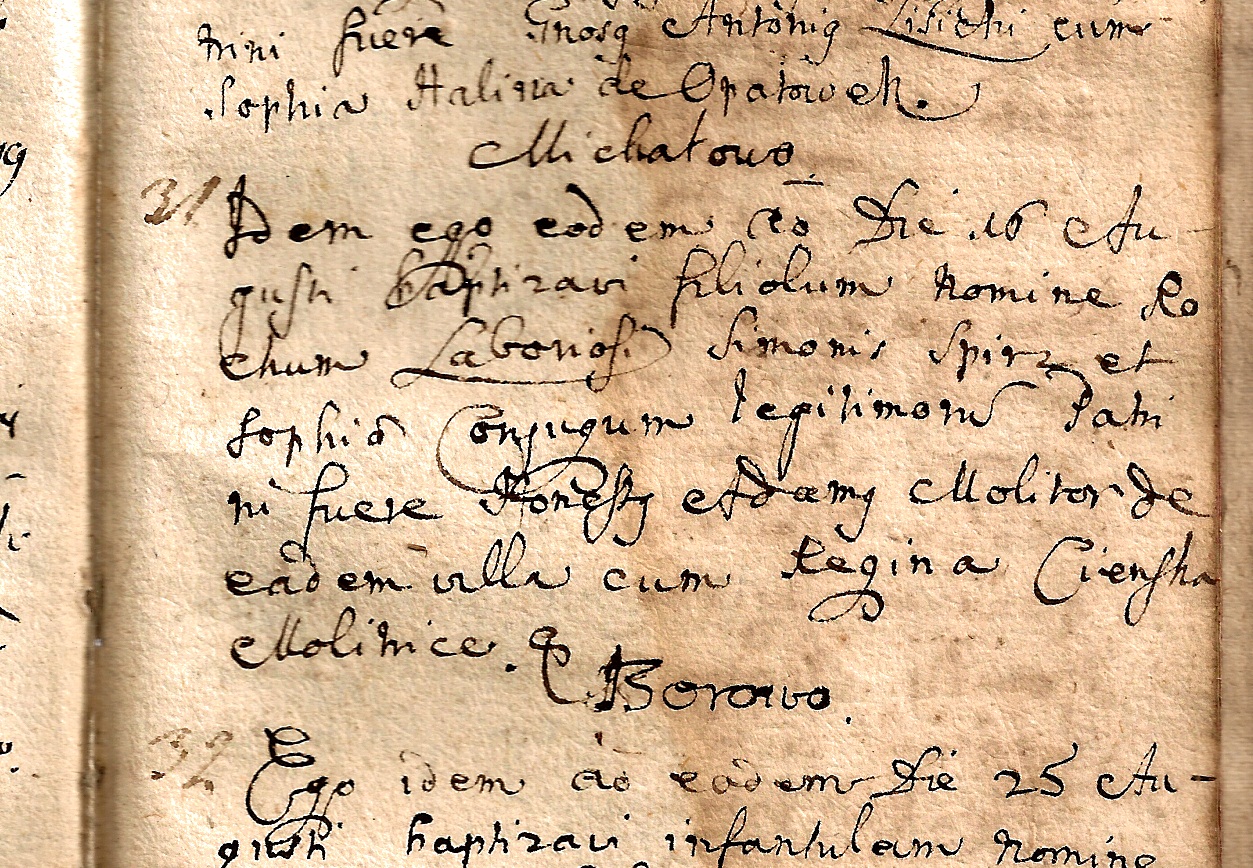 nini fuere Gnosq Antonig Lisicki cum
Sophia Halina de Opatowek.
Michałowo
31 Idem ego eodem Ao Die 16 Au-
gusti baptizavi filiolum nomine Ro
chum Laboriosi Simonis Spirz et
Sophiæ Conjugum legitimoru Patri
ni fuere Honestg Adamg Molitor de
eadem villa cum Regina Cienska
Molitrice.
Borowo.
32 Ego idem ao eodem Die 25 Au-
gusti baptizavi infantulam nomine